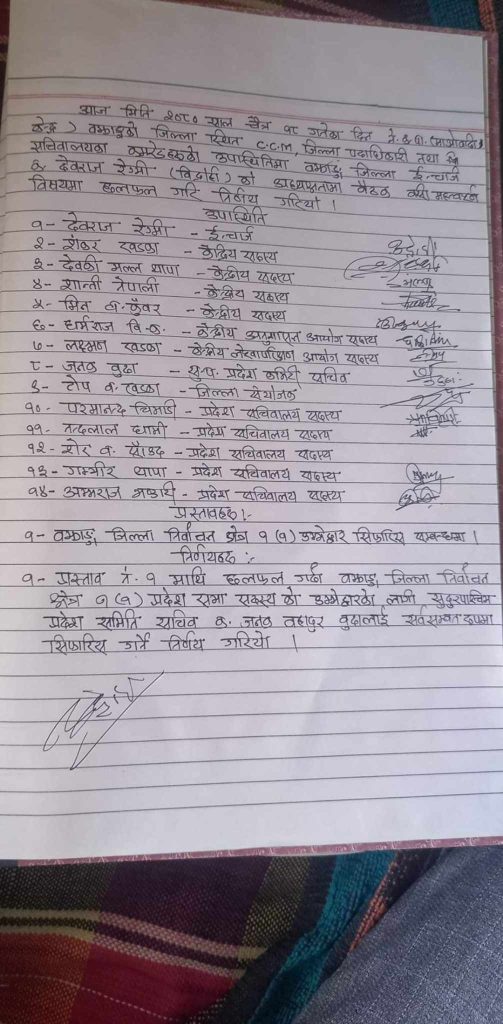 आज मिति २०८० साल चैत्र १८ गतेका दिन ने.क.पा. (माओवादी
केन्द्र) बझाङको जिल्ला स्थित C.C.M, जिल्ला पदाधिकारी तथा
सचिवालयका कमरेडहरुको उपस्थितिमा बझाङ जिल्ला ई.चार्ज
क. देवराज रेग्मी (विद्रोही) को अध्यक्षतामा बैठक बसी महत्वपूर्ण
विषयमा छलफल गरि निर्णय गरियो ।
उपस्थिति
१- देवराज रेग्मी - ई.चार्ज
२- शंकर खडका - केन्द्रिय सदस्य
३- देवकी मल्ल थापा - केन्द्रीय सदस्य
४- शान्ती नेपाली - केन्द्रीय सदस्य
५- मिन ब. कुँवर - केन्द्रीय सदस्य
६- धर्मराज वि.क. - केन्द्रीय अनुशासन आयोग सदस्य
७- लक्ष्मण खडका - केन्द्रीय लेखापरिक्षण आयोग सदस्य
८- जनक बुढा - सु.प. प्रदेश कमिटी सचिव
९- टोप ब. खडका - जिल्ला संयोजक
१०- परमानन्द - प्रदेश सचिवालय सदस्य
११- नन्दलाल धामी - प्रदेश सचिवालय सदस्य
१२- शेर ब. साँउद - प्रदेश सचिवालय सदस्य
१३- गम्भीर थापा - प्रदेश सचिवालय सदस्य
१४- अम्मराज भण्डारी - प्रदेश सचिवालय सदस्य
प्रस्तावहरु :-
१- बझाङ जिल्ला निर्वाचन क्षेत्र १ (१) उम्मेद्वार सिफारिस सम्बन्धमा ।
निर्णयहरु :-
१- प्रस्ताव नं. १ माथि छलफल गर्दा बझाङ जिल्ला निर्वाचन
क्षेत्र १ (१) प्रदेश सभा सदस्य को उम्मेद्वारका लागी सुदुरपश्चिम
प्रदेश समिति सचिव क. जनक बहादुर बुढालाई सर्वसम्मत रुपमा
सिफारिस गर्ने निर्णय गरियो ।